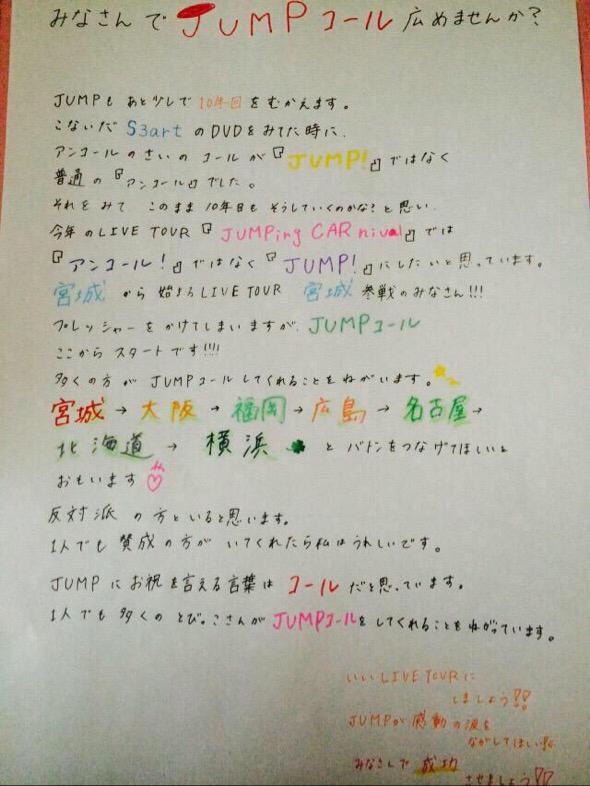 みなさんで JUMPコール 広めませんか?
JUMPも あと少しで 10年目 をむかえます。
こないだ S3art のDVDをみてた時に、
アンコールのさいの コールが『JUMP!』ではなく
普通の『アンコール』でした。
それをみて このまま 10年目も そうしていくのかな?と思い、
今年のLIVE TOUR『JUMPing CARnival』では
『アンコール!』ではなく『JUMP!』にしたいと思っています。
宮城 から 始まるLIVE TOUR 宮城 参戦のみなさん!!!
プレッシャーをかけてしまいますが、JUMPコール
ここから スタートです!!!!
多くの方が JUMPコールしてくれることをねがいます。
宮城→大阪→福岡→広島→名古屋→
北海道→横浜 と バトンをつなげてほしいと
おもいます
反対派の方もいると思います。
1人でも 賛成の方が いてくれたら私はうれしいです。
JUMPにお祝を言える言葉は コール だと思っています。
1人でも多くの とびっこさんがJUMPコールをしてくれることをねがっています。
いいLIVE TOURに
しましょう!!
JUMPが感動の涙を
ながしてほしい!!
みなさんで 成功
させましょう!!